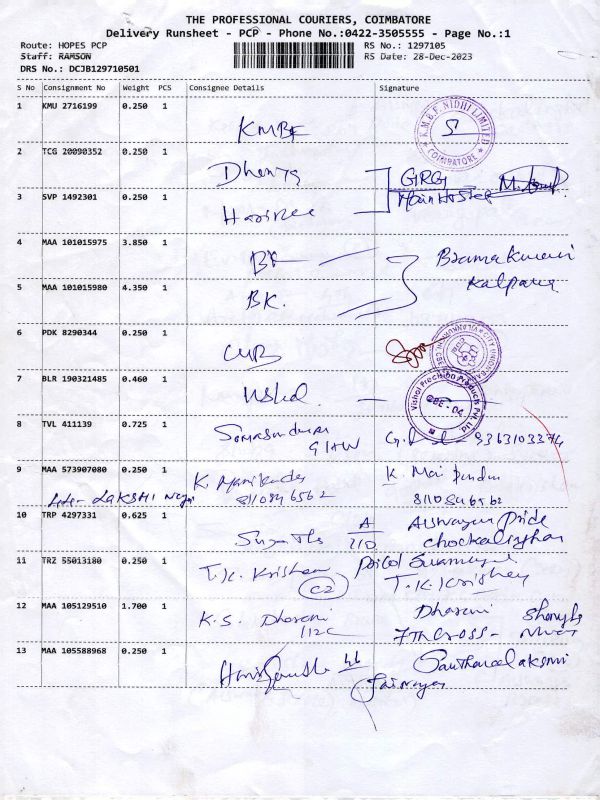 THE PROFESSIONAL COURIERS, COIMBATORE
Delivery Runsheet - PCP - Phone No.:0422-3505555 - Page No.:1
Route: HOPES PCP RS No.: 1297105
Staff: RAMSON RS Date: 28-Dec-2023
DRS No.: DCJB129710501
S No Consignment No Weight PCS Consignee Details Signature
1 KMU 2716199 0.250 1
KMBF K.M.B.F. NIDHI LIMITED COIMBATORE
2 TCG 20090352 0.250 1
Dhanya GRG
3 SVP 1492301 0.250 1
Main Hostel
4 MAA 101015975 3.850 1
BK
Kalpana
5 MAA 101015980 4.350 1
BK.
6 PDK 8290344 0.250 1
CUB
7 BLR 190321485 0.460 1
Vishal Precision Products Pvt. Ltd. CBE - 04
8 TVL 411139 0.725 1
Somasundaram
9 MAA 573907080 0.250 1
K. Manikanda K.
8110846562
10 TRP 4297331 0.625 1
A Pride
210
11 TRZ 55013180 0.250 1
T.K. Krishnan
C2 T.K. Krishnan
12 MAA 105129510 1.700 1
K.S. Dharani Dharani
112C 7th Cross -
13 MAA 105588968 0.250 1